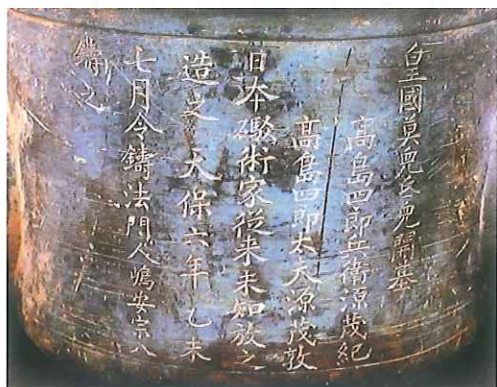 皇國莫児氐児開基
高島四郎兵衛源茂紀
高島四郎太夫源茂敦
日本礟術家従来未知放之
造之天保六年乙未
七月令鋳法門人嶋安宗八
鑄之